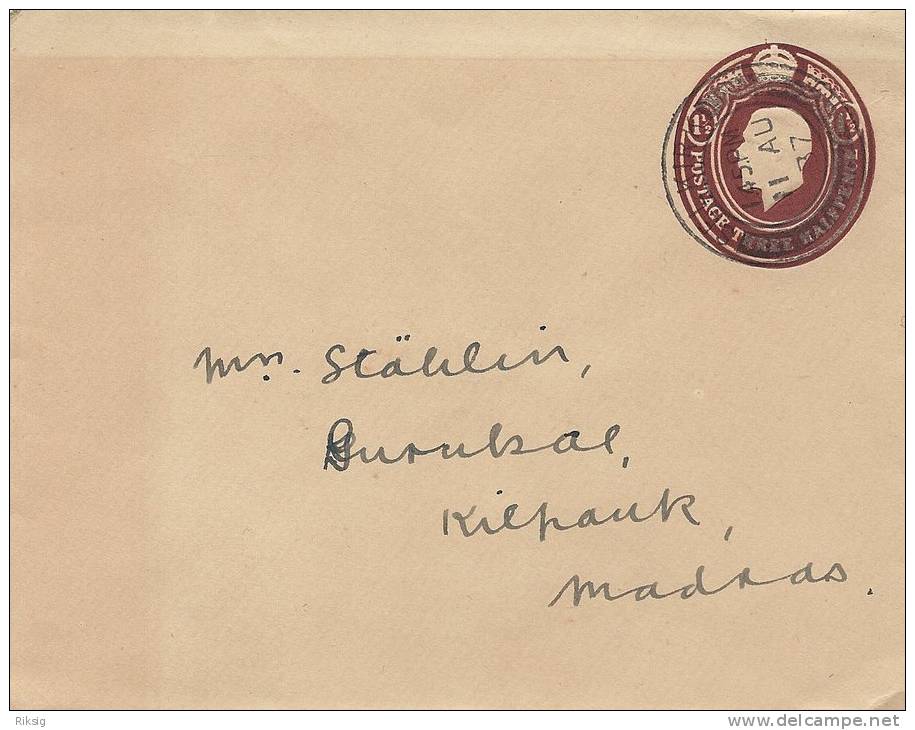 1½
POSTAGE THREE HALFPENCE
1 45 PM
11 AU
37
Mrs. Stählin,
Gurukal,
Kilpauk,
Madras.
Riksig
www.delcampe.net